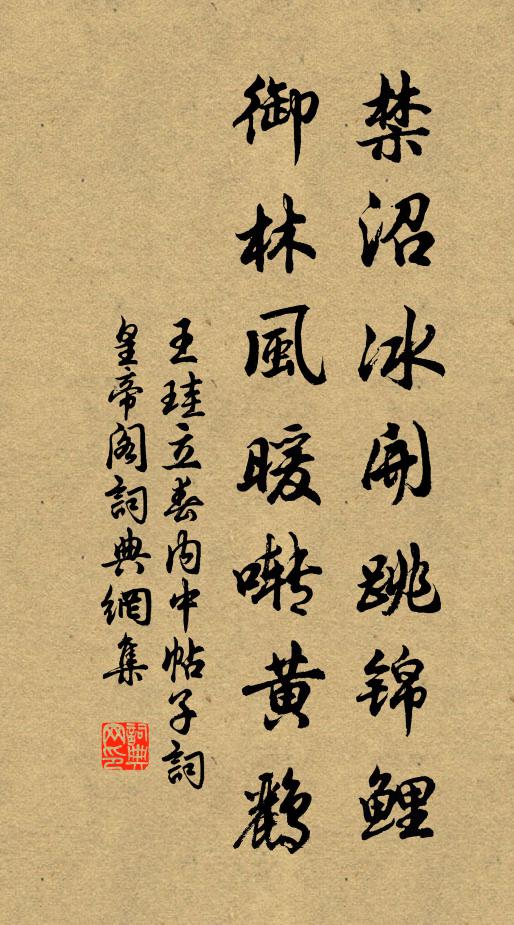 禁沼冰開跳錦鯉
御林風暖囀黄鸝
王珪立春内中帖子詞
皇帝閣詞典網集
詞典网印